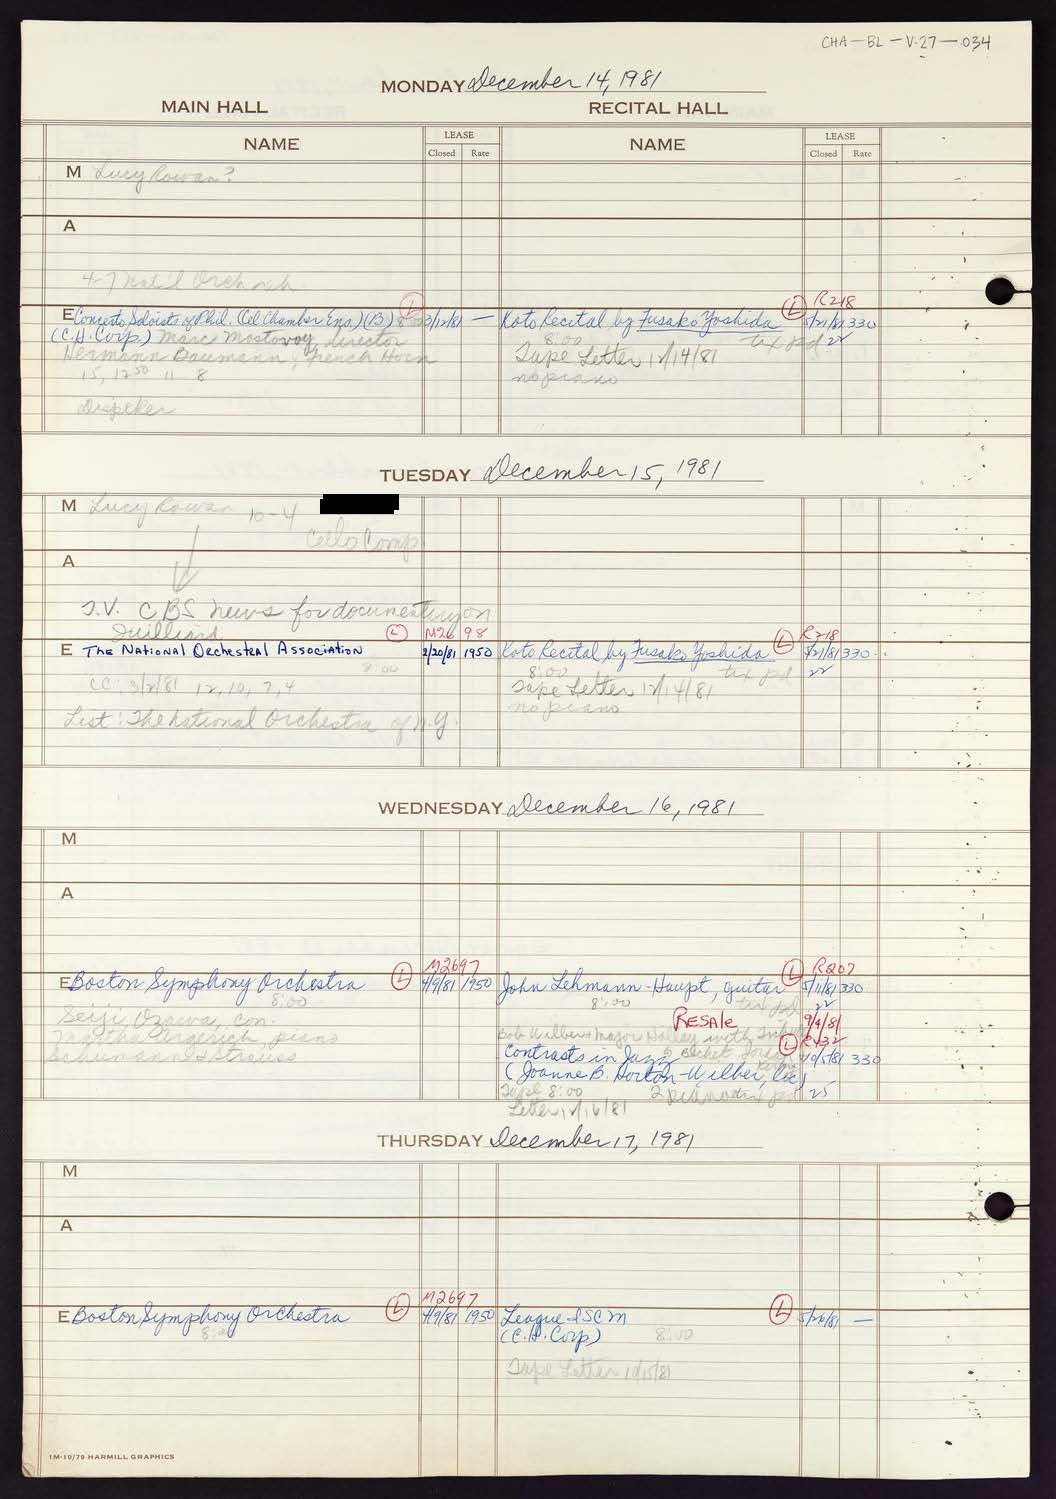 CHA-BL-V-27-034
MONDAY December 14, 1981
MAIN HALL RECITAL HALL
NAME LEASE NAME LEASE
Closed Rate Closed Rate
M Lucy Rowan?
A
4-7 Nat'l Orch reh
L L R218
E Concerto Soloists of Phil. (Cel Chamber Ens.) (B) 8:00 3/12/81 — Koto Recital by Fusako Yoshida 5/21/81 330
(C.H. Corp.) Marc Mostovoy, director 8:00 tix pd 22
Hermann Baumann, French Horn Tape Letter 12/14/81
15, 12 50 11 8 no piano
Dispeker
TUESDAY December 15, 1981
M Lucy Rowan 10-4
Cello Comp.
A
T.V. CBS news for documentary on
Juilliard L M2698 L R218
E The National Orchestral Association 2/20/81 1950 Koto Recital by Fusako Yoshida 5/21/81 330
8:00 8:00 tix pd 22
CC: 3/2/81 12, 10, 7, 4 Tape Letter 12/14/81
no piano
List: The National Orchestra of N.Y.
WEDNESDAY December 16, 1981
M
A
L M2697 L R207
E Boston Symphony Orchestra 4/9/81 1950 John Lehmann-Haupt, guitar 5/11/81 330
8:00 8:00 tix pd 22
Seiji Ozawa, con. RESALE 9/4/81
Martha Argerich, piano Bob Wilber & Major Holley with L R432
Schumann & Strauss Contrasts in Jazz 10/5/81 330
(Joanne B. Horton-Wilber, lic)
Tape 8:00 2 pianos tix pd 25
Letter 12/16/81
THURSDAY December 17, 1981
M
A
L M2697 L
E Boston Symphony Orchestra 4/9/81 1950 League ISCM 5/26/81 —
8:00 (C.H. Corp) 8:00
Tape Letter
1M-10/79 HARMILL GRAPHICS